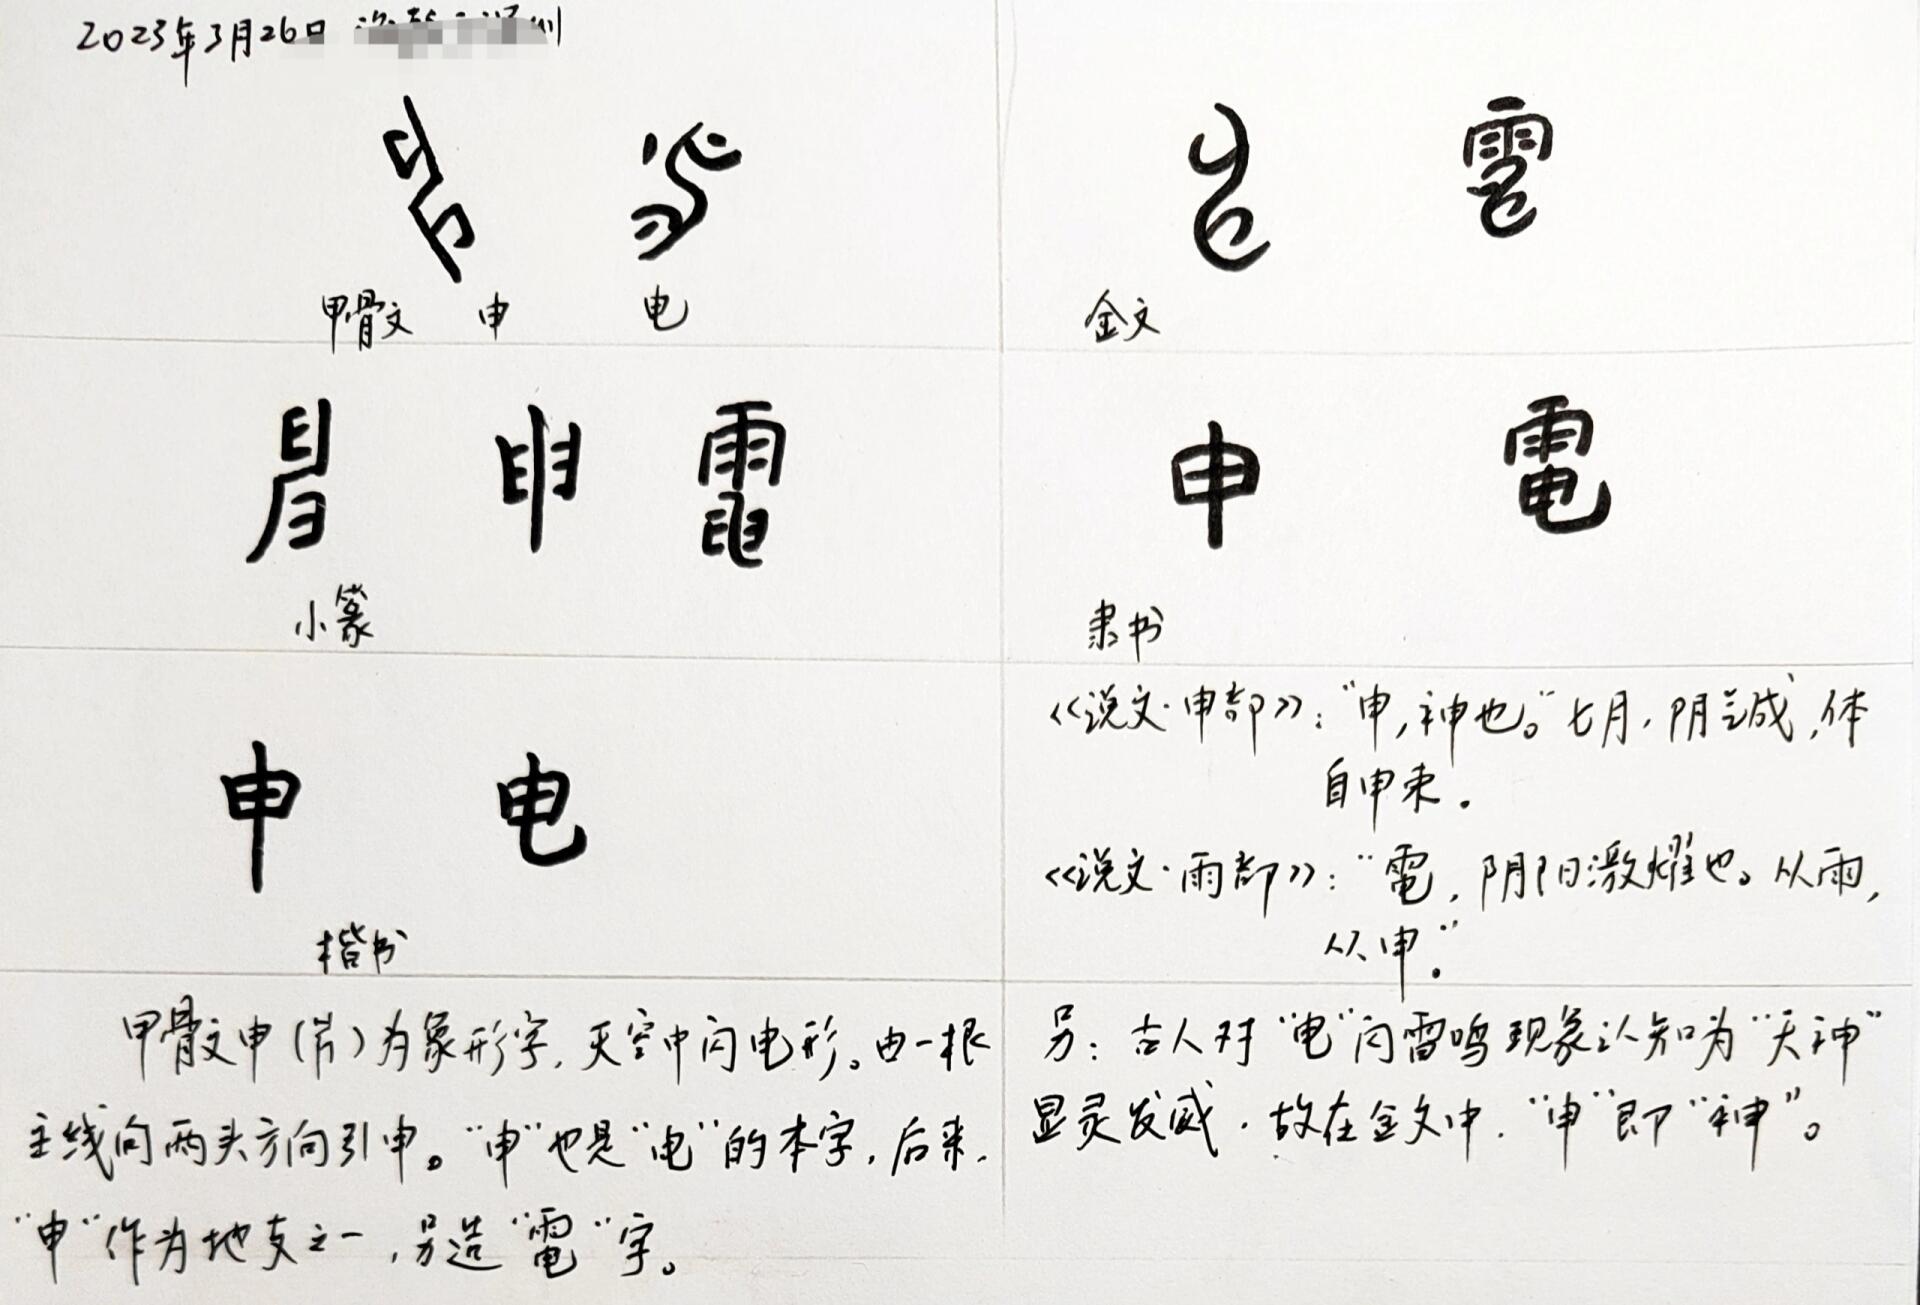 2023年3月26日
申 电
甲骨文 申 电
申 電
金文
申 電
小篆
申 電
隶书
申 电
楷书
《说文·申部》："申,神也。"七月,阴气成,体
自申束.
《说文·雨部》："電,阴阳激耀也。从雨,
从申."
甲骨文申()为象形字,天空中闪电形。由一根
主线向两头方向引申。"申"也是"电"的本字,后来,
"申"作为地支之一,另造"電"字。
另:古人对"电"闪雷鸣现象认知为"天神"
显灵发威.故在金文中."申"即"神"。